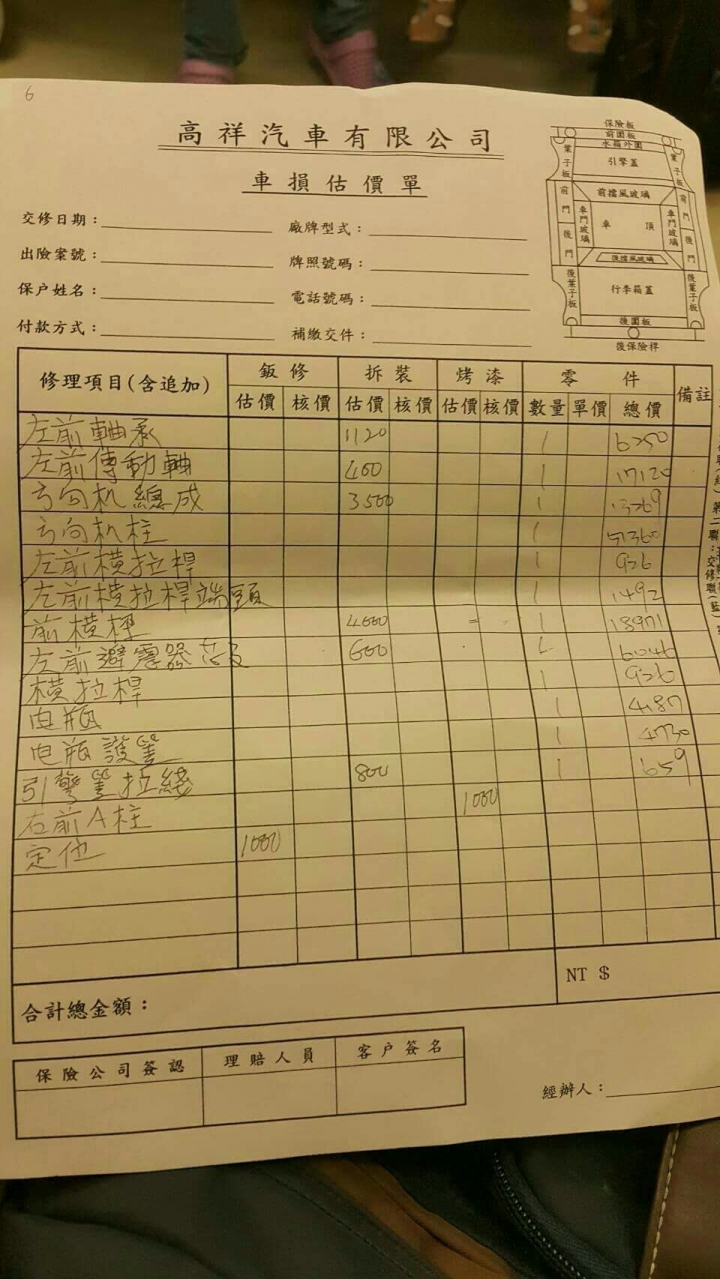 6
高祥汽車有限公司
車損估價單
交修日期：
廠牌型式：
出險案號：
牌照號碼：
保户姓名：
電話號碼：
付款方式：
補繳交件：
保險板
前圍板
水箱外圍
葉子板 引擎蓋 葉子板
前擋風玻璃
前門 車門玻璃 車頂 車門玻璃 前門
後門 後門
後擋風玻璃
後葉子板 行李箱蓋 後葉子板
後圍板
後保險桿
修理項目(含追加) 鈑修 拆裝 烤漆 零件 備註
估價 核價 估價 核價 估價 核價 數量 單價 總價
左前軸承 1120 1 6250
左前傳動軸 400 1 17120
方向机總成 3500 1 13269
方向机柱 1 51360
左前橫拉桿 1 926
左前橫拉桿端頭 1 1492
前橫樑 4000 1 18971
左前避震器 600 6046
橫拉桿 1 926
电瓶 1 4187
电瓶護蓋 1 4730
引擎蓋拉綫 800 1 659
右前A柱 1000
定位 1000
合計總金額：
NT $
保險公司簽認 理賠人員 客户簽名
經辦人：